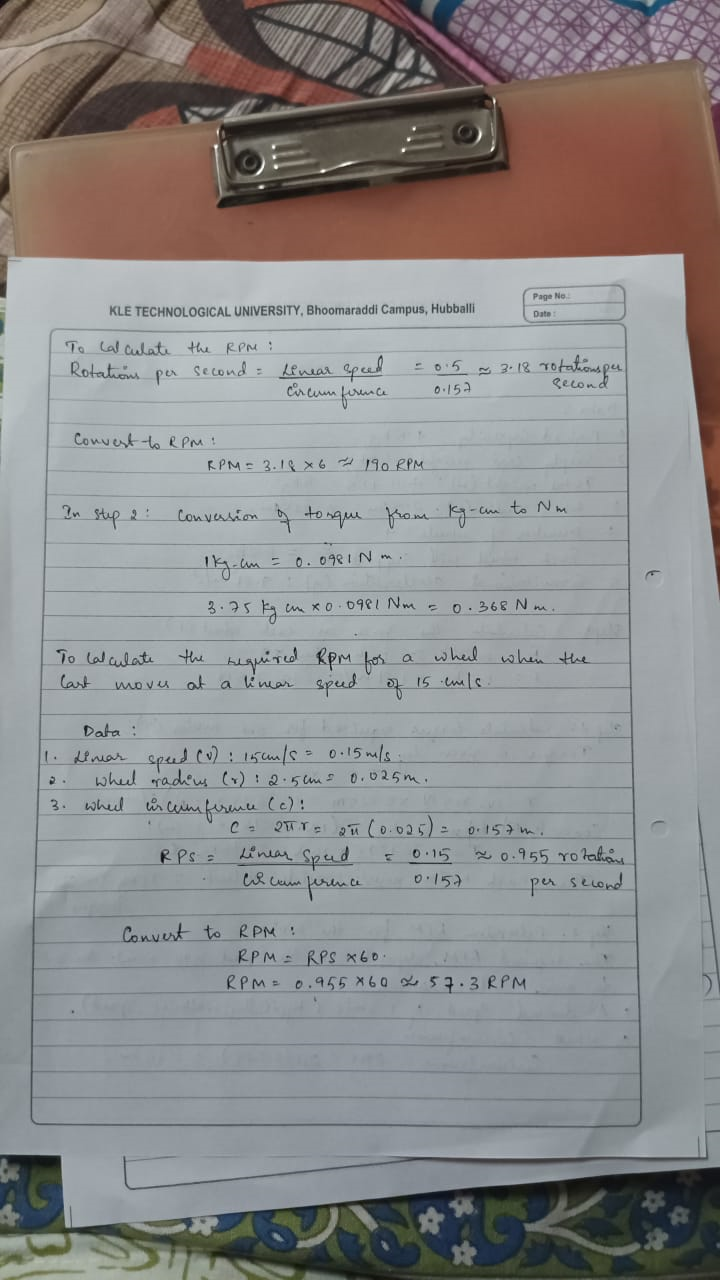 KLE TECHNOLOGICAL UNIVERSITY, Bhoomaraddi Campus, Hubballi
Page No.:
Date :
To Calculate the RPM :
Rotations per second = Linear speed / Circumference = 0.5 / 0.157 ≈ 3.18 rotations per second
Convert to RPM :
RPM = 3.18 × 6 ≈ 190 RPM
In step 2 : Conversion of torque from kg-cm to Nm
1 kg-cm = 0.0981 N m.
3.75 kg cm × 0.0981 Nm = 0.368 N m.
To Calculate the required RPM for a wheel when the
Cart moves at a linear speed of 15 cm/s.
Data :
1. Linear speed (v) : 15 cm/s = 0.15 m/s.
2. wheel radius (r) : 2.5 cm = 0.025 m.
3. wheel circumference (c) :
C = 2πr = 2π (0.025) = 0.157 m.
RPS = Linear Speed / Circumference = 0.15 / 0.157 ≈ 0.955 rotations per second
Convert to RPM :
RPM = RPS × 60.
RPM = 0.955 × 60 ≈ 57.3 RPM